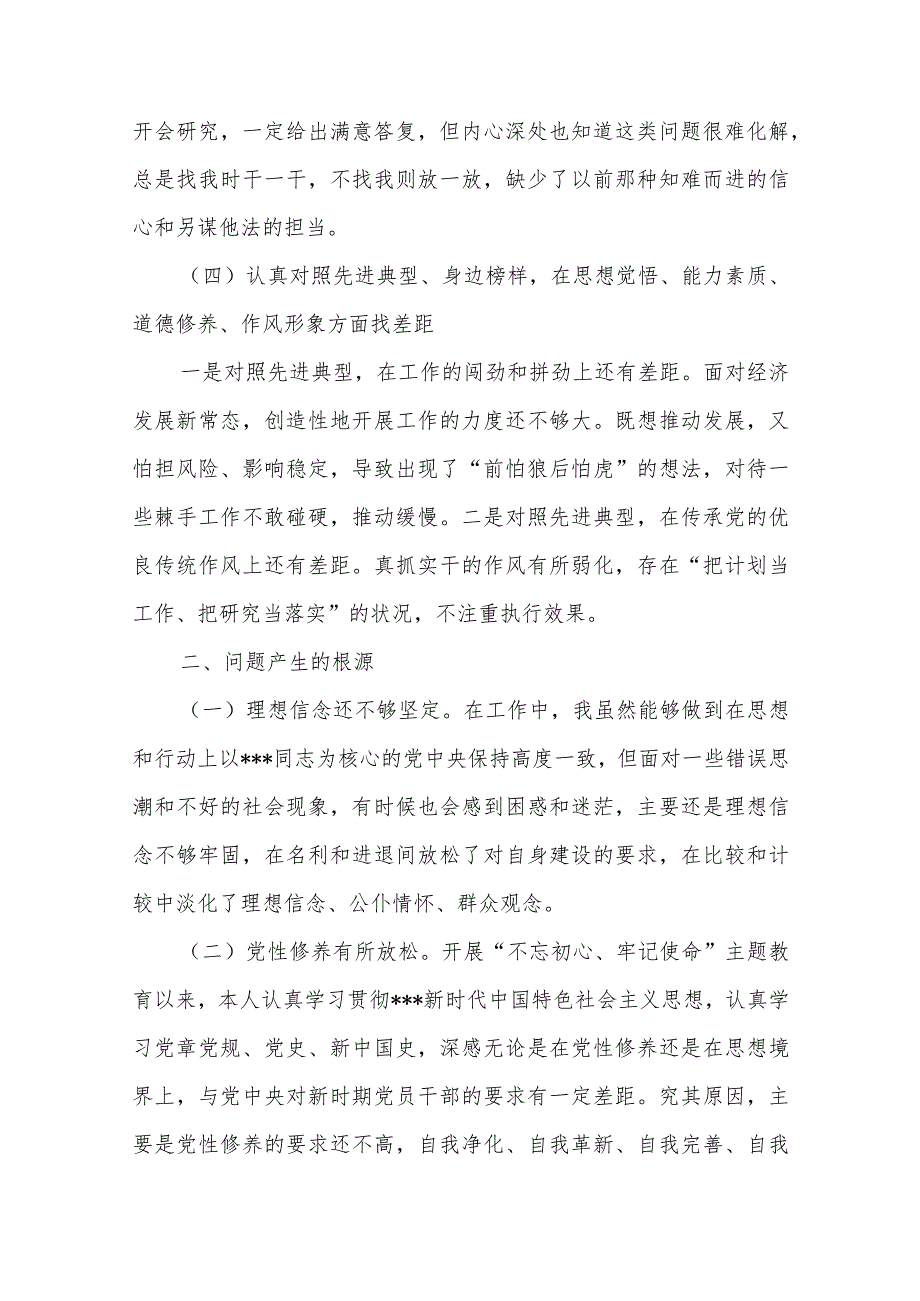 开会研究，一定给出满意答复，但内心深处也知道这类问题很难化解，
总是找我时干一干，不找我则放一放，缺少了以前那种知难而进的信
心和另谋他法的担当。
（四）认真对照先进典型、身边榜样，在思想觉悟、能力素质、
道德修养、作风形象方面找差距
一是对照先进典型，在工作的闯劲和拼劲上还有差距。面对经济
发展新常态，创造性地开展工作的力度还不够大。既想推动发展，又
怕担风险、影响稳定，导致出现了“前怕狼后怕虎”的想法，对待一
些棘手工作不敢碰硬，推动缓慢。二是对照先进典型，在传承党的优
良传统作风上还有差距。真抓实干的作风有所弱化，存在“把计划当
工作、把研究当落实”的状况，不注重执行效果。
二、问题产生的根源
（一）理想信念还不够坚定。在工作中，我虽然能够做到在思想
和行动上以***同志为核心的党中央保持高度一致，但面对一些错误思
潮和不好的社会现象，有时候也会感到困惑和迷茫，主要还是理想信
念不够牢固，在名利和进退间放松了对自身建设的要求，在比较和计
较中淡化了理想信念、公仆情怀、群众观念。
（二）党性修养有所放松。开展“不忘初心、牢记使命”主题教
育以来，本人认真学习贯彻***新时代中国特色社会主义思想，认真学
习党章党规、党史、新中国史，深感无论是在党性修养还是在思想境
界上，与党中央对新时期党员干部的要求有一定差距。究其原因，主
要是党性修养的要求还不高，自我净化、自我革新、自我完善、自我